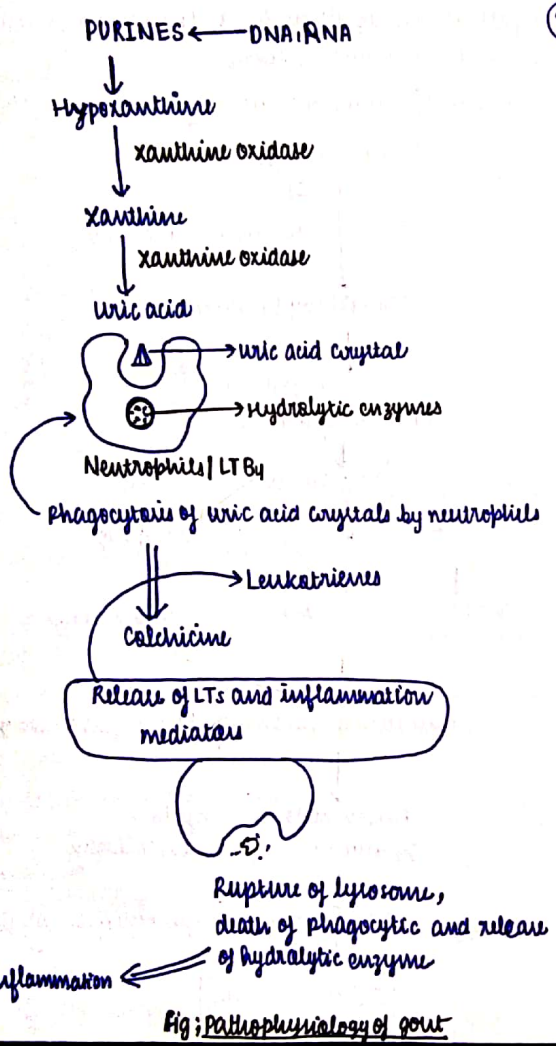 PURINES ← DNA, RNA
Hypoxanthine
xanthine oxidase
xanthine
xanthine oxidase
uric acid
uric acid crystal
Hydrolytic enzymes
Neutrophils/LTB4
Phagocytosis of uric acid crystals by neutrophils
Leukotrienes
Colchicine
Release of LTs and inflammation
mediators
Rupture of lysosome,
death of phagocytic and release
of hydrolytic enzyme
nflammation
Fig: Pathophysiology of gout